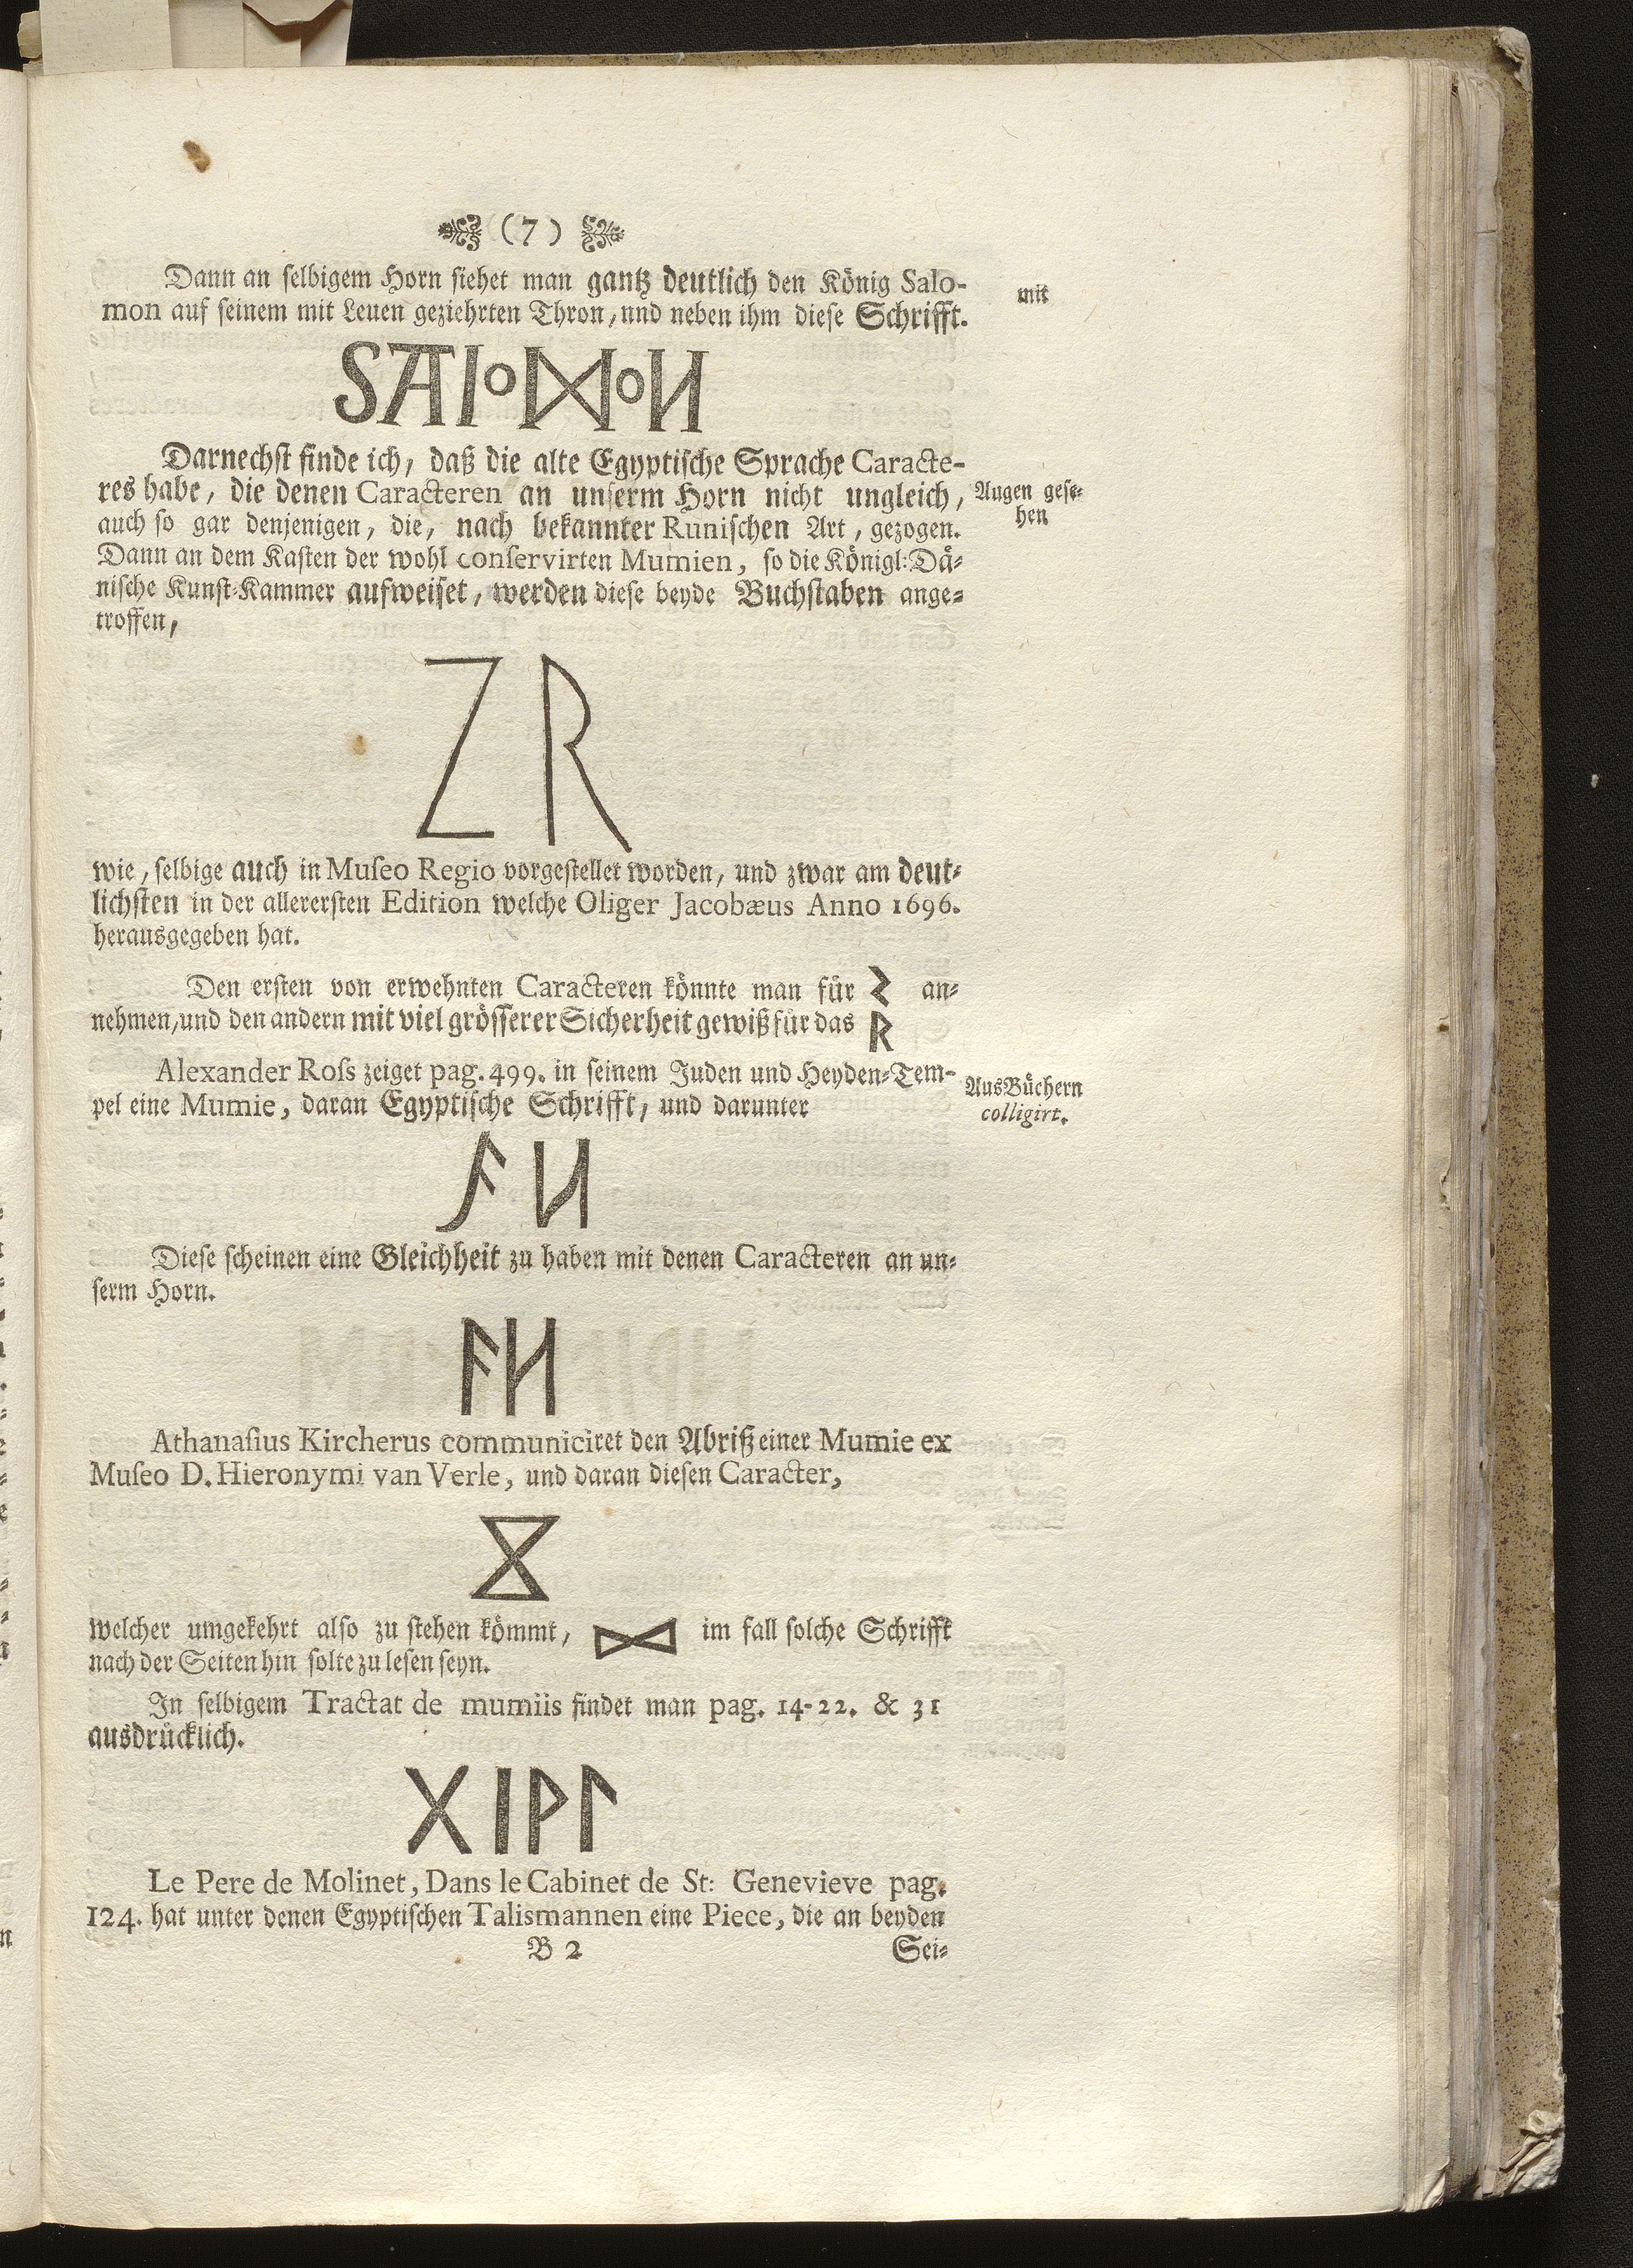 (7)
Dann an selbigem Horn siehet man gantz deutlich den König Salo-
mon auf seinem mit Leuen geziehrten Thron, und neben ihm diese Schrifft.
mit
SAIOᛞOИ
Darnechst finde ich, daß die alte Egyptische Sprache Caracte-
res habe, die denen Caracteren an unserm Horn nicht ungleich,
Augen gese-
hen
auch so gar denjenigen, die, nach bekannter Runischen Art, gezogen.
Dann an dem Kasten der wohl conservirten Mumien, so die Königl: Dä-
nische Kunst-Kammer aufweiset, werden diese beyde Buchstaben ange-
troffen,
Z R
wie, selbige auch in Museo Regio vorgestellet worden, und zwar am deut-
lichsten in der allerersten Edition welche Oliger Jacobæus Anno 1696.
herausgegeben hat.
Den ersten von erwehnten Caracteren könnte man für ᛊ an-
nehmen, und den andern mit viel grösserer Sicherheit gewiß für das ᚱ
Alexander Ross zeiget pag. 499. in seinem Juden und Heyden-Tem-
pel eine Mumie, daran Egyptische Schrifft, und darunter
Aus Büchern
colligirt.
ᚨ И
Diese scheinen eine Gleichheit zu haben mit denen Caracteren an un-
serm Horn.
ᚨИ
Athanasius Kircherus communiciret den Abriß einer Mumie ex
Museo D. Hieronymi van Verle, und daran diesen Caracter,
⧖
welcher umgekehrt also zu stehen kömmt, ⋈ im fall solche Schrifft
nach der Seiten hin solte zu lesen seyn.
In selbigem Tractat de mumiis findet man pag. 14-22. & 31
ausdrücklich.
ᚷ ᛁ ᚹ ᛚ
Le Pere de Molinet, Dans le Cabinet de St: Genevieve pag.
124. hat unter denen Egyptischen Talismannen eine Piece, die an beyden
B 2
Sei-